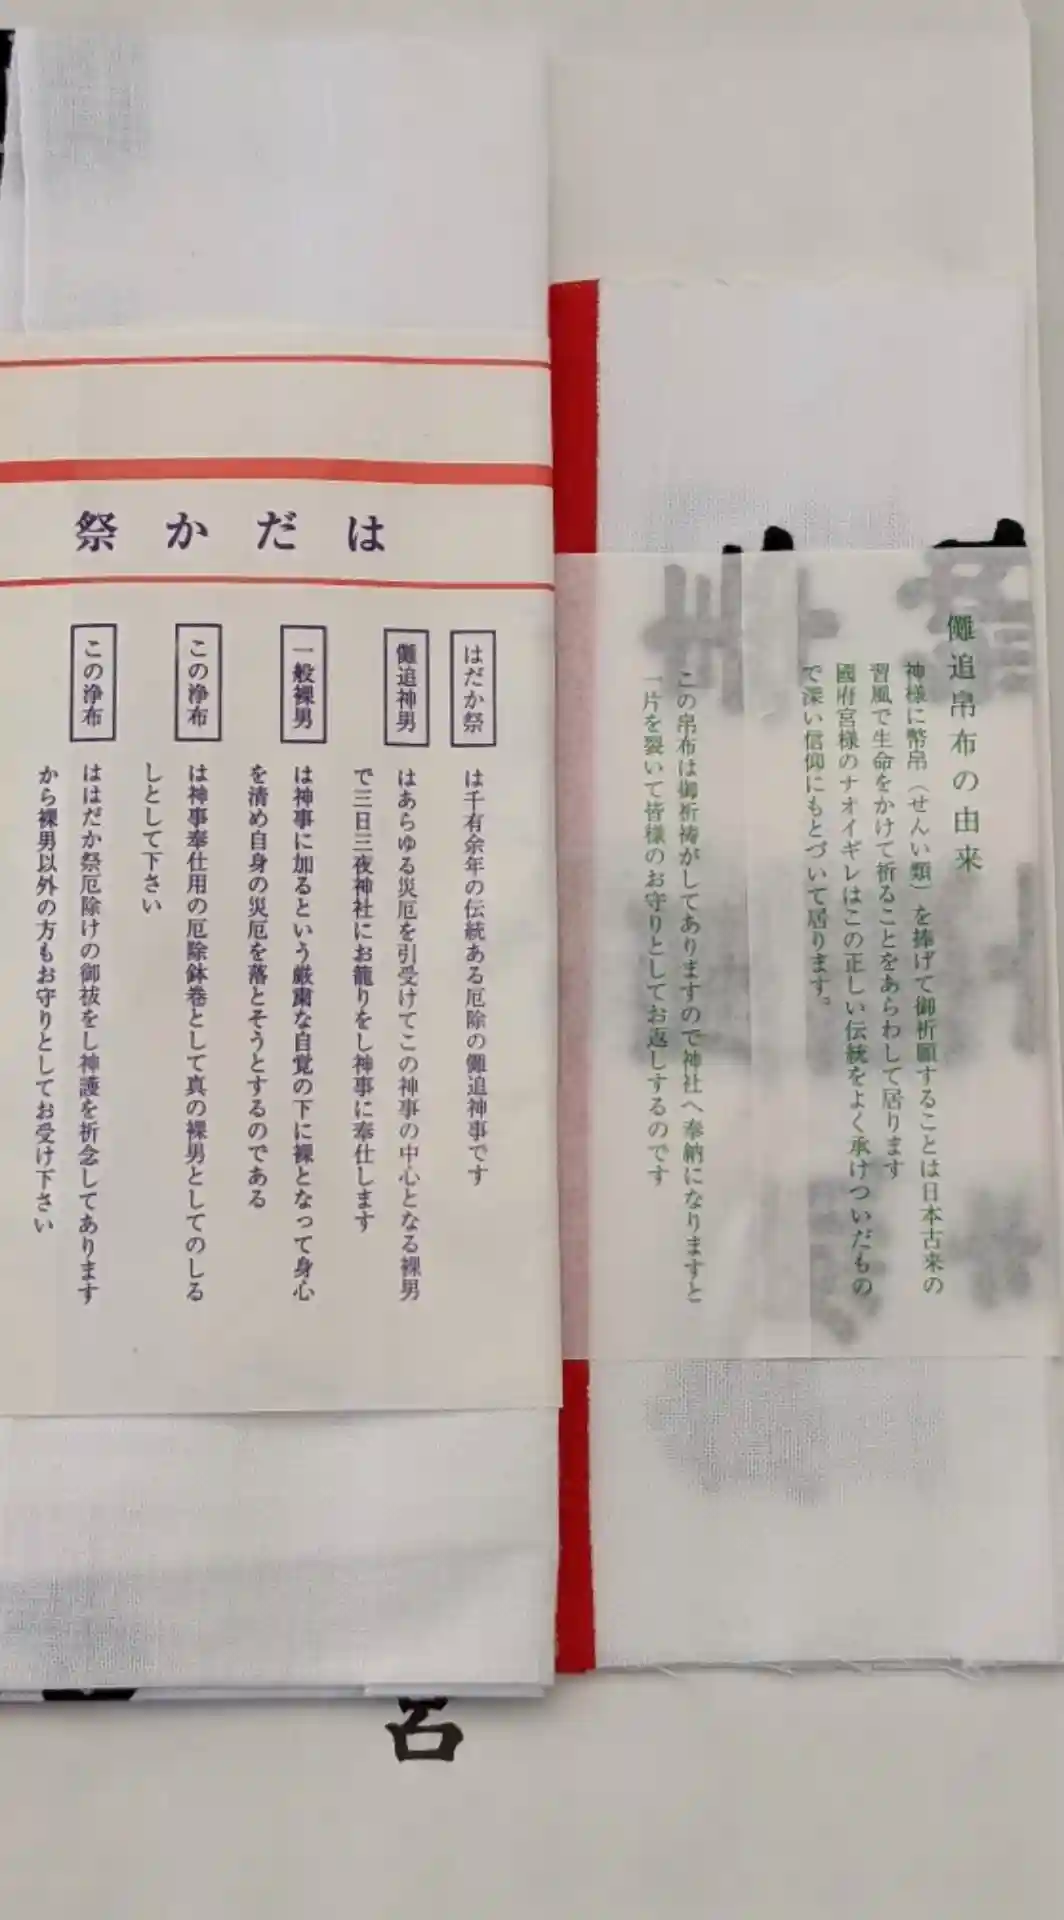 はだか祭
はだか祭
は千有余年の伝統ある厄除の儺追神事です
儺追神男
はあらゆる災厄を引受けてこの神事の中心となる裸男
で三日三夜神社にお籠りをし神事に奉仕します
一般裸男
は神事に加るという厳粛な自覚の下に裸となって身心
を清め自身の災厄を落とそうとするのである
この浄布
は神事奉仕用の厄除鉢巻として真の裸男としてのしる
しとして下さい
この浄布
ははだか祭厄除けの御祓をし神護を祈念してあります
から裸男以外の方もお守りとしてお受け下さい
儺追帛布の由来
神様に幣帛（せんい類）を捧げて御祈願することは日本古来の
習風で生命をかけて祈ることをあらわして居ります
國府宮様のナオイギレはこの正しい伝統をよく承けついだもの
で深い信仰にもとづいて居ります。
この帛布は御祈祷がしてありますので神社へ奉納になりますと
一片を裂いて皆様のお守りとしてお返しするのです